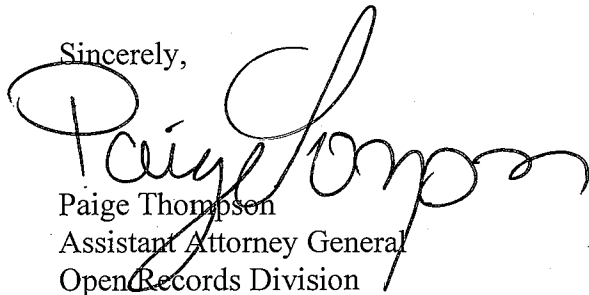 Sincerely,
Paige Thompson
Paige Thompson
Assistant Attorney General
Open Records Division